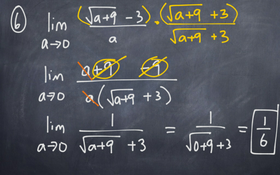 6 lim a→0 (√a+9 - 3) / a · (√a+9 + 3) / (√a+9 + 3)
lim a→0 a+9 -9 / a(√a+9 + 3)
lim a→0 1 / √a+9 + 3 = 1 / √0+9 +3 = 1/6